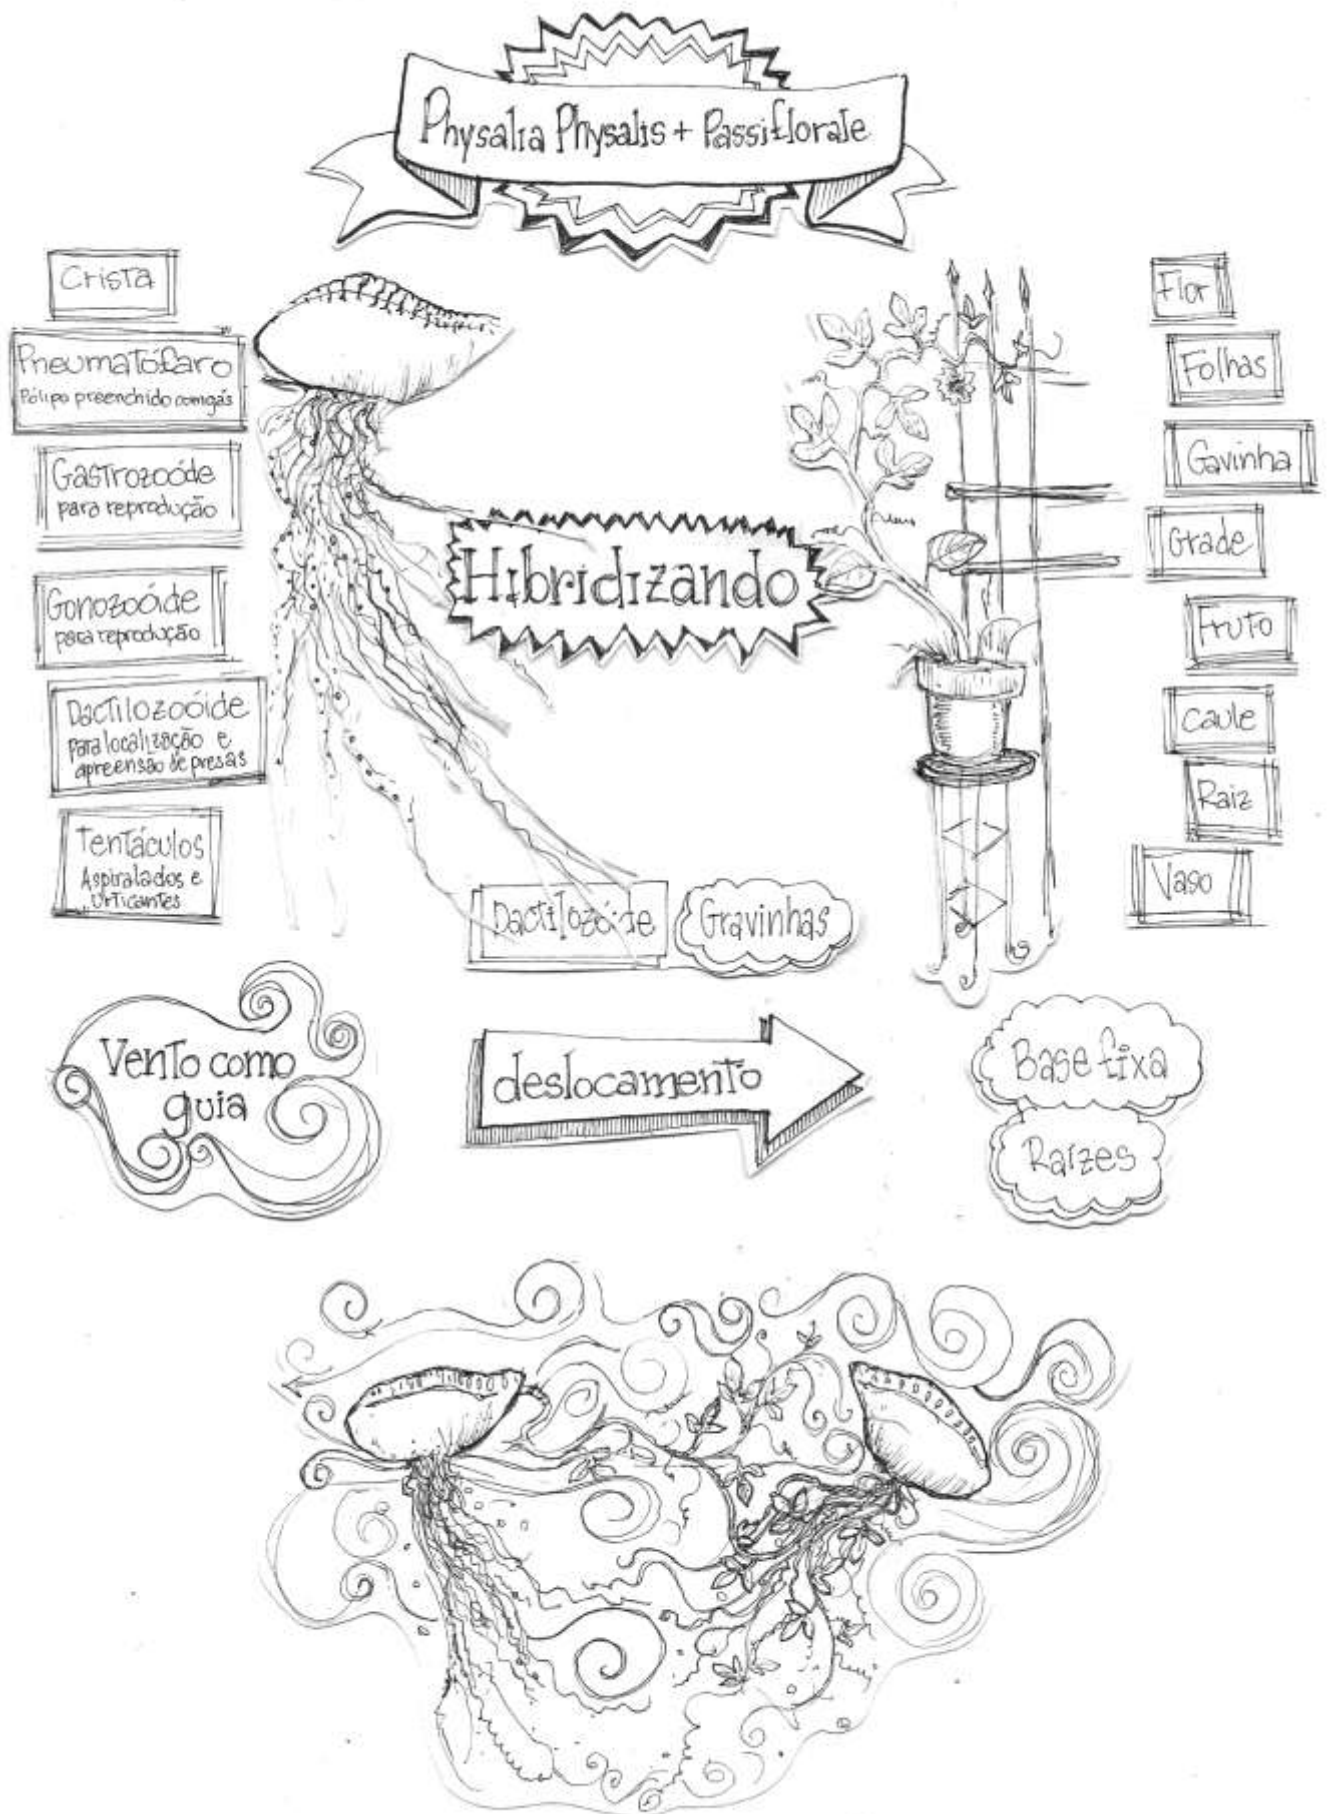 Physalia Physalis + Passiflorale
Crista
Pneumatófaro
Pólipo preenchido com gás
Gastrozoóde
para reprodução
Gonozoóide
para reprodução
Dactilozoóide
para localização e
apreensão de presas
Tentáculos
Aspiralados e
urticantes
Hibridizando
Flor
Folhas
Gavinha
Grade
Fruto
Caule
Raiz
Vaso
Dactilozóide
Gravinhas
Vento como
guia
deslocamento
Base fixa
Raízes